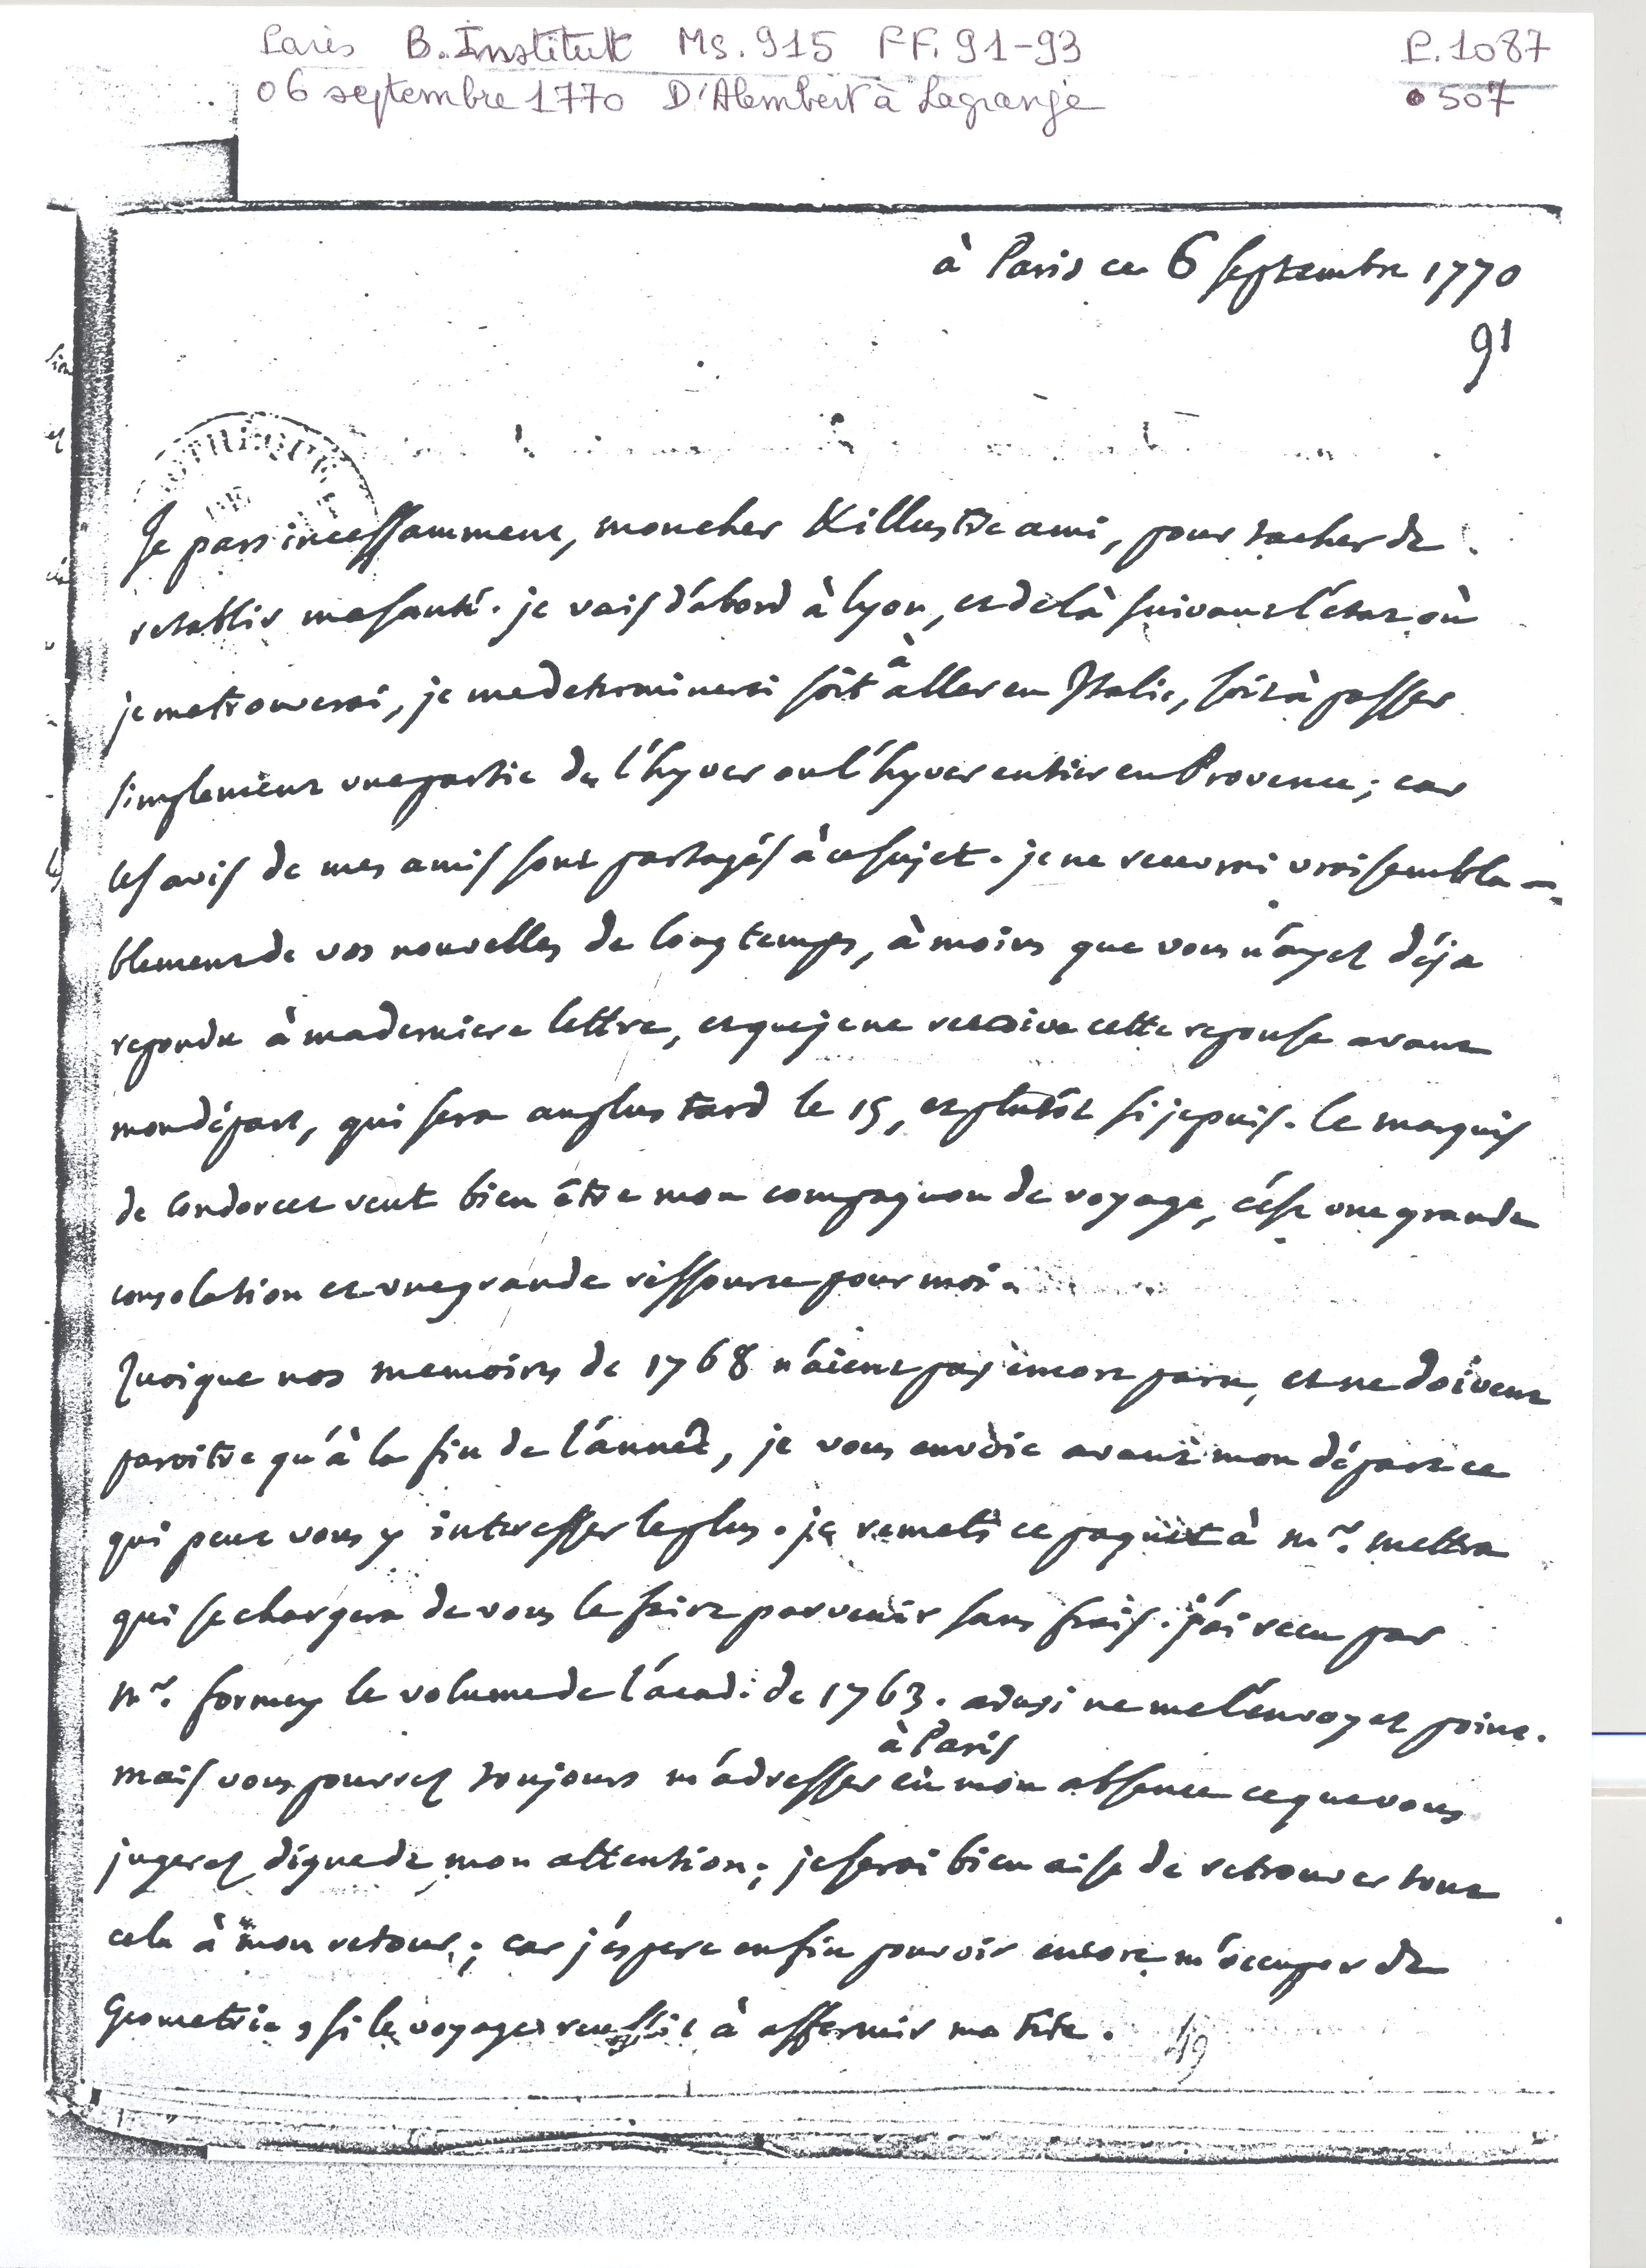 Paris B. Institut Ms. 915 FF. 91-93 P. 1087
06 septembre 1770 D'Alembert à Lagrange 507
à Paris ce 6 septembre 1770
91
Je pars incessamment, mon cher & illustre ami, pour tacher de
retablir ma santé. je vais d'abord à Lyon, et de là suivant l'état où
je me trouverai, je me determinerai soit à aller en Italie, soit à passer
simplement une partie de l'hyver ou l'hyver entier en Provence; car
les avis de mes amis sont partagés à ce sujet. je ne recevrai vraisembla-
blement de vos nouvelles de longtemps, à moins que vous n'ayez déja
repondu à ma derniere lettre, et que je ne recoive cette reponse avant
mon départ, qui sera au plus tard le 15, et plutôt si je puis. le marquis
de Condorcet veut bien être mon compagnon de voyage, c'est une grande
consolation et une grande ressource pour moi.
Quoique nos memoires de 1768 n'aient pas encore paru, et ne doivent
paroitre qu'à la fin de l'année, je vous envoie avant mon départ ce
qui peut vous y interesser le plus. je remets ce paquet à Mr. Mettra
qui se chargera de vous le faire parvenir sans frais. j'ai recu par
Mr. formey le volume de l'acad. de 1763. ainsi ne me l'envoyez point.
mais vous pourrez toujours m'adresser à Paris en mon absence ce que vous
jugerez digne de mon attention; je serai bien aise de retrouver tout
cela à mon retour; car j'espere enfin pouvoir encore m'occuper de
Geometrie, si le voyage reussit à affermir ma tête.
49